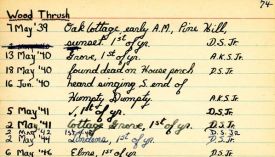 74-
Wood Thrush
7 May '39 Oak Cottage, early A.M., Pine Hill,
sunset 1st of yr. D.S. Jr.
13 May '40 Grove, 1st of yr. A.K.S. Jr.
18 May '40 found dead on House porch D.S. Jr.
16 Jun. '40 heard singing S. end of
Humpty Dumpty A.K.S. Jr.
5 May '41 1st of yr. D.S. Jr.
2 May '41 Cottage Grove, 1st of yr. D.S. Jr.
2 May '42 1st of yr. D.S. Jr.
2 May '44 Lindens, 1st of yr. D.S. Jr.
6 May '46 Elms, 1st of yr. D.S. Jr.